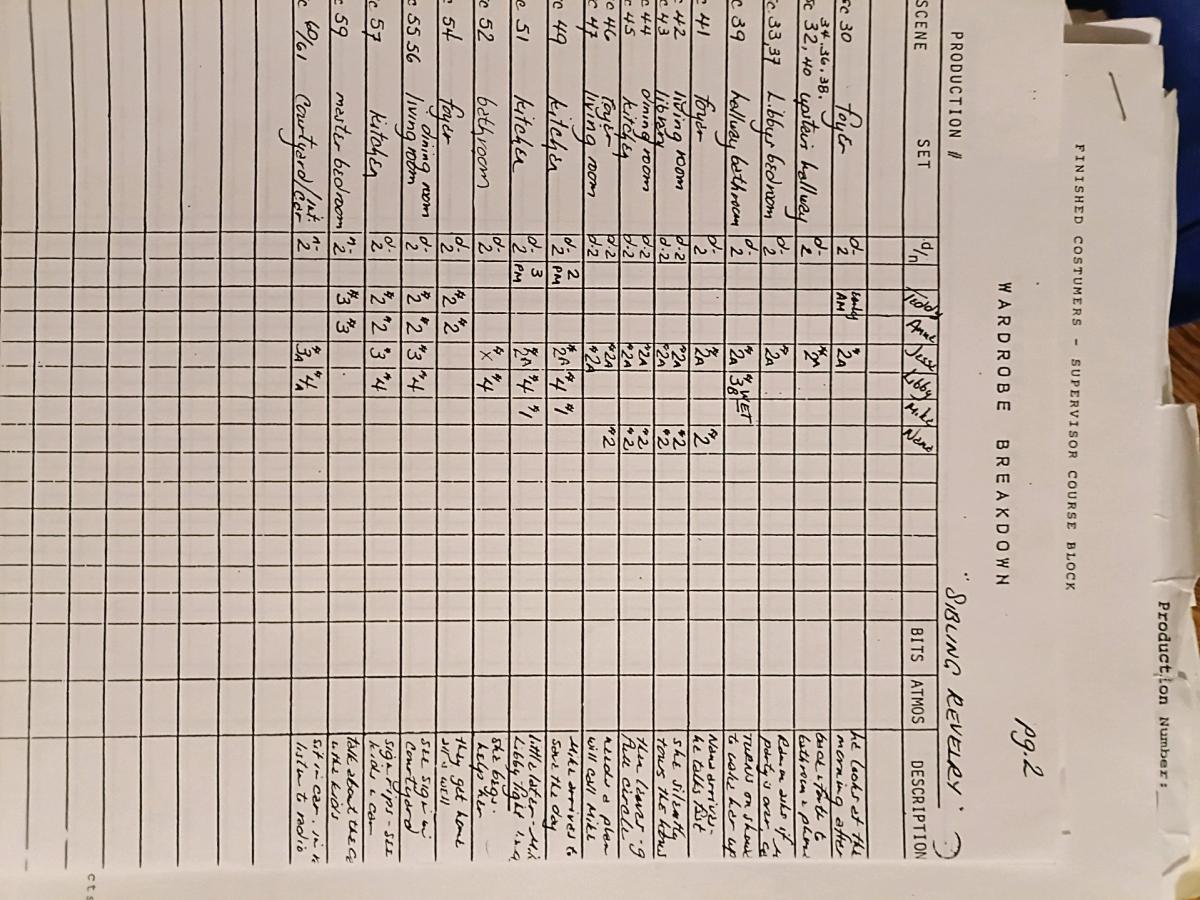 Production Number:
FINISHED COSTUMERS - SUPERVISOR COURSE BLOCK
WARDROBE BREAKDOWN
pg 2
PRODUCTION # "SIBLING REVELRY"
SCENE SET d/n Teddy Anne Jest Libby Mike Nana BITS ATMOS DESCRIPTION
sc 30 foyer d-2 early AM #2A he looks at the morning after
34, 36, 38,
sc 32, 40 upstair hallway d-2 #2A back & forth to bathroom & phone
sc 33, 37 Libbys bedroom d-2 #2A party's over
sc 39 hallway bathroom d-2 #2A #3B WET TURNS on shower to wake her up
c 41 foyer d-2 #2A #2 Nana arrives - he talks fast
c 42 living room d-2 #2A #2 she silently
c 43 library d-2 #2A #2 tours the house
c 44 dining room d-2 #2A #2 then leaves -
c 45 kitchen d-2 #2A #2 full circle
c 46 foyer d-2 #2A #2 needs a plan
c 47 living room d-2 #2A will call Mike
c 49 kitchen d-2 2 PM #2A #4 #1 Mike arrives to save the day
c 51 kitchen d-2 3 PM #2A #4 #1 little later - Libby fight
c 52 bathroom d-2 #X #4 she begs - help her
c 54 foyer d-2 #2 #2 they get home all's well
c 55 56 dining room living room d-2 #2 #2 #3 #4 see sign in courtyard
c 57 kitchen d-2 #2 #2 #3 #4 sign rips - see kids & car
c 59 master bedroom n-2 #3 #3 talk about the kids
c 60/61 Courtyard/int. car n-2 #3A #4A sit in car. listen to radio
cts